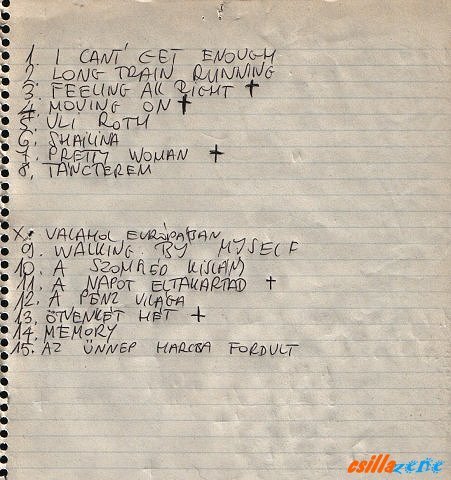 1. I CANT' GET ENOUGH
2. LONG TRAIN RUNNING
3. FEELING ALL RIGHT +
4. MOVING ON +
5. ULI ROTH
6. SHAILINA
7. PRETTY WOMAN +
8. TÁNCTEREM
X. VALAHOL EURÓPÁBAN
9. WALKING BY MYSELF
10. A SZOMSÉD KISLÁNY
11. A NAPOT ELTAKARTAD +
12. A PÉNZ VILÁGA
13. ÖTVENKÉT HÉT +
14. MEMORY
15. AZ ÜNNEP HARCBA FORDULT
csillazene